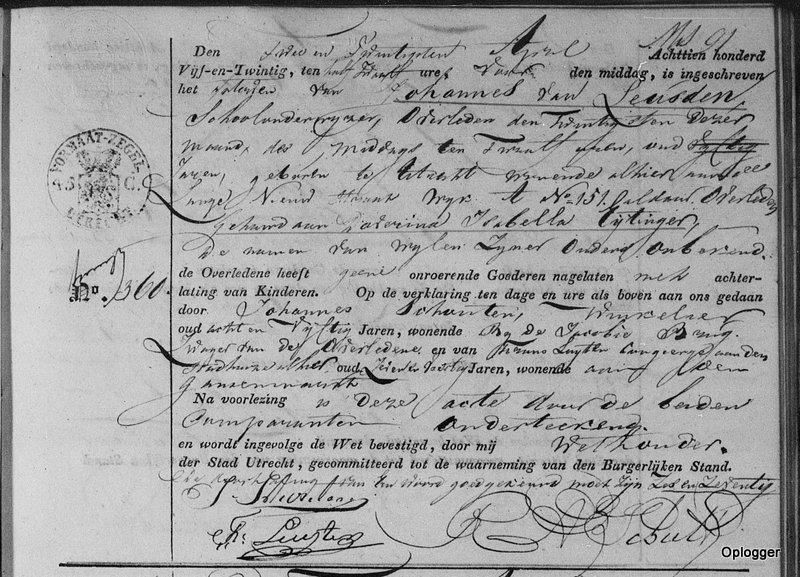 Den Twee en Twintigsten April Achttien honderd
Vijf-en-Twintig, ten half Twaalf ure, Voor den middag, is ingeschreven
het overlijden van Johannes van Leusden,
Schoolonderwyzer, Overleden den Twintigsten dezer
maand des Middags ten Twaalf uren, oud Vyftig
Jaren, geboren te Utrecht wonende alhier aan de
Lange Nieuw straat Wyk A No 151. aldaar Overleden
Gehuwd aan Caterina Isabella Eytinger,
De namen van wylen Zyner Ouders onbekend.
de Overledene heeft geene onroerende Goederen nagelaten met achter-
lating van Kinderen. Op de verklaring ten dage en ure als boven aan ons gedaan
door Johannes Schouten, Winkelier
oud acht en Vyftig Jaren, wonende By de Jacobie Brug.
Zwager van de Overledene en van
Stadhuize alhier oud Jaren, wonende aan den
Ganzenmarkt
Na voorlezing is Deze acte door de beiden
Comparanten Onderteekend.
en wordt ingevolge de Wet bevestigd, door mij Wethouder.
der Stad Utrecht, gecommitteerd tot de waarneming van den Burgerlijken Stand.
De doorhaling van Een Woord goedgekeurd moet zyn Zes en Zeventig
FORMAAT-ZEGEL
45 C.
UTRECHT
No. 360.
Oplogger